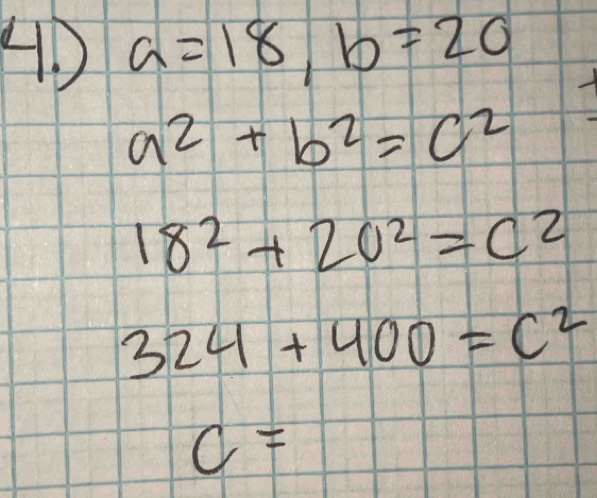 4.) a=18, b=20
a² + b² = c²
18² + 20² = c²
324 + 400 = c²
c =